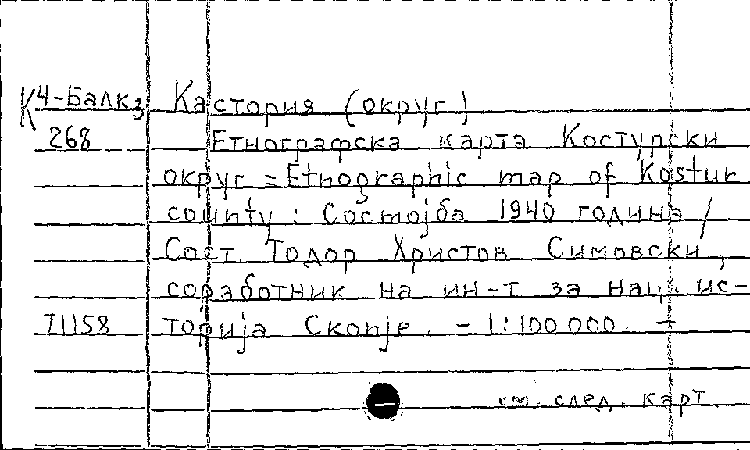 К4-Балк3 Кастория (округ)
268 Етнографска карта Костурски
округ = Ethographic map of Kostur
county : Состојба 1940 година /
Сост. Тодор Христов Симовски,
соработник на ин-т за нац. ис-
71158 торија Скопје. - 1:100 000. -
см. след. карт.